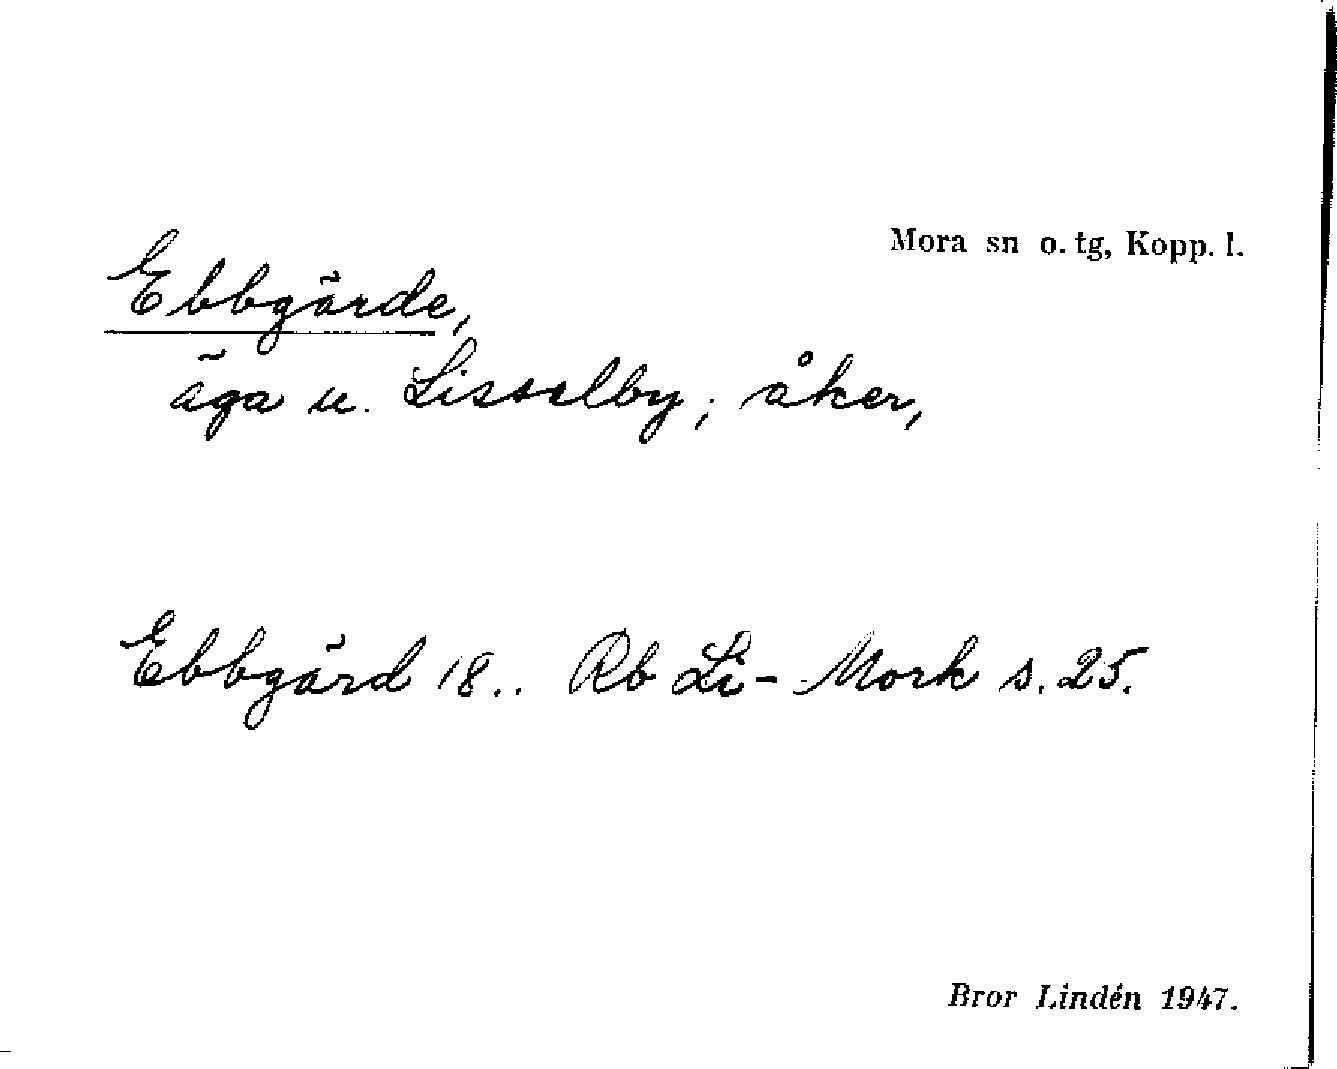 Mora sn o. tg, Kopp. l.
Ebbgärde,
äga u. Lisselby; åker,
Ebbgärd 18.. Rb Li- Mork s. 25.
Bror Lindén 1947.